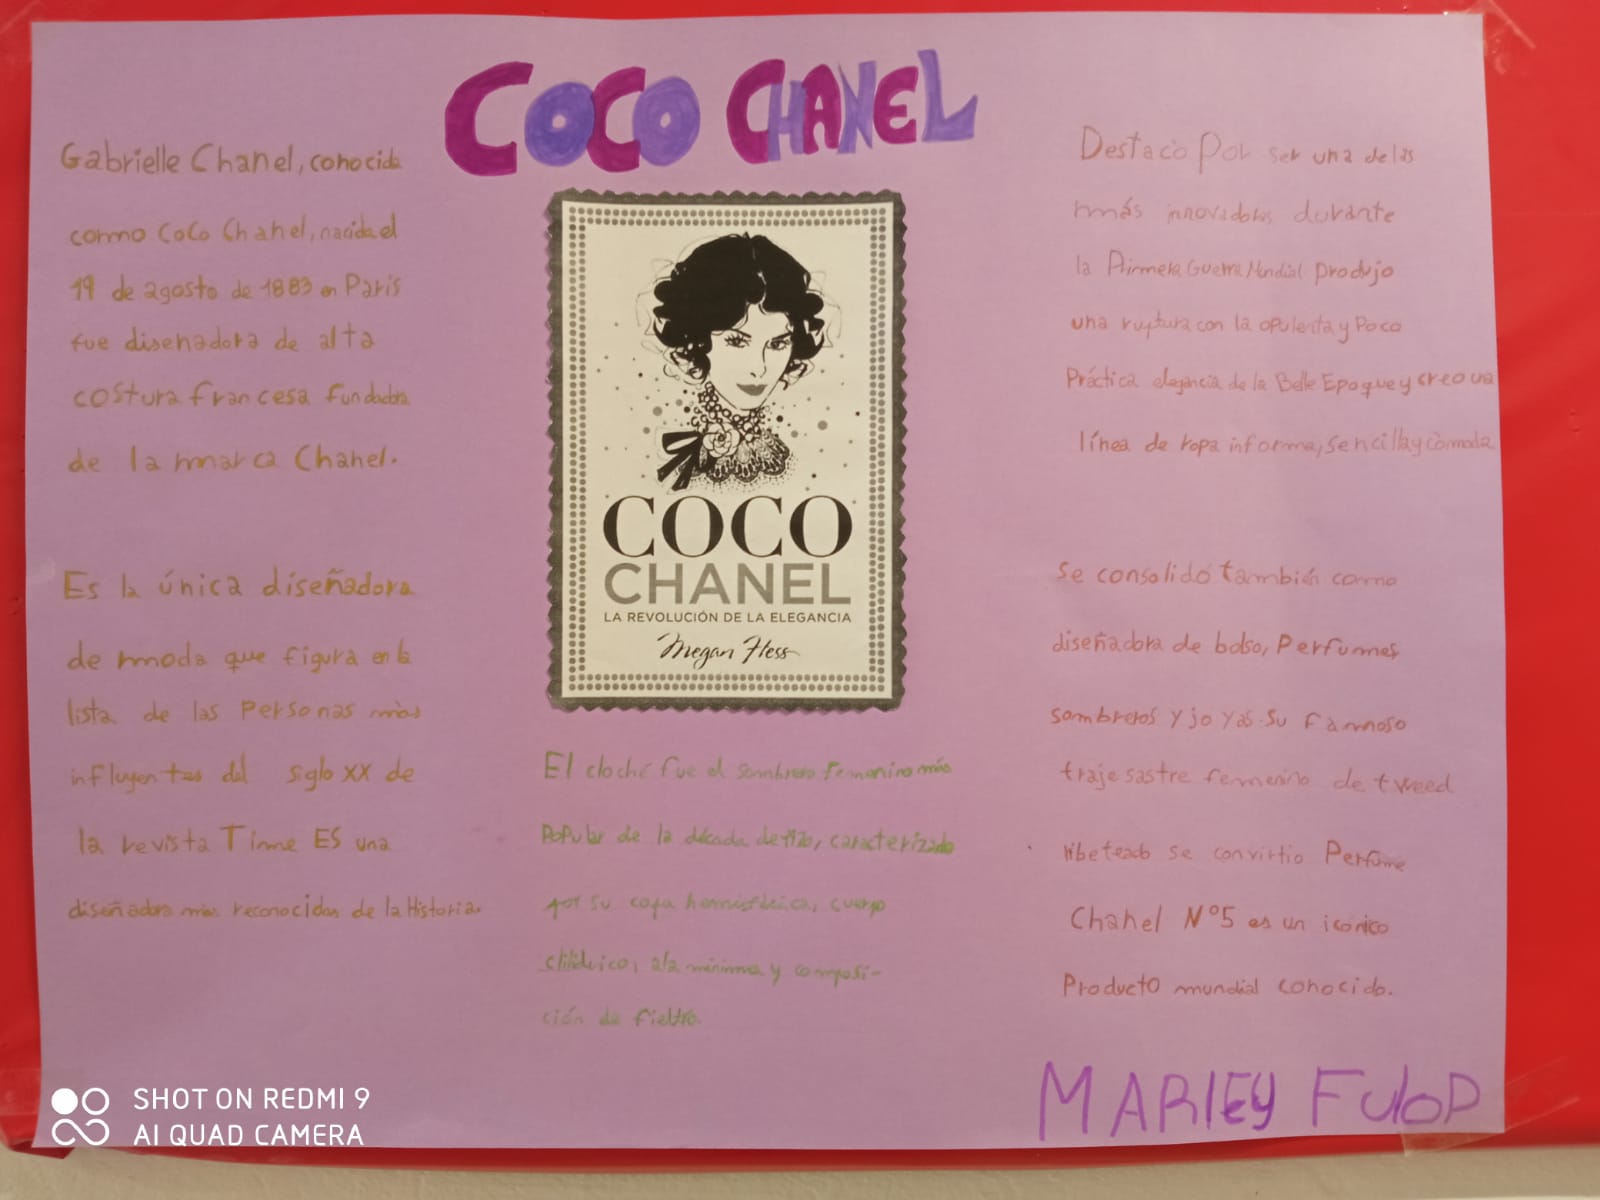 COCO CHANEL
Gabrielle Chanel, conocida
como CoCo Chanel, nacida el
19 de agosto de 1883 en París
fue disenadora de alta
costura francesa fundadora
de la marca Chanel.
Es la única diseñadora
de moda que figura en la
lista de las Personas más
influyentes del siglo XX de
la revista Time ES una
diseñadora más reconocidas de la Historia.
COCO
CHANEL
LA REVOLUCIÓN DE LA ELEGANCIA
Megan Hess
El cloché fue el sombrero femenino más
Popular de la década de 1920, caracterizado
por su copa hemisférica, cuerpo
cilíndrico, ala mínima y composi-
ción de fieltro.
Destacò Por ser una de las
más innovadoras durante
la Primera Guerra Mundial produjo
una ruptura con la opulenta y Poco
Práctica elegancia de la Belle Epoque y creo una
línea de ropa informa, sencilla y còmoda
Se consolidó también como
diseñadora de bolso, Perfumes,
sombreros y joyas. Su famoso
traje sastre femenino de tweed
ribeteado se convirtio Perfume
Chanel Nº5 es un icónico
Producto mundial conocido.
MARLEY FULOP
SHOT ON REDMI 9
AI QUAD CAMERA